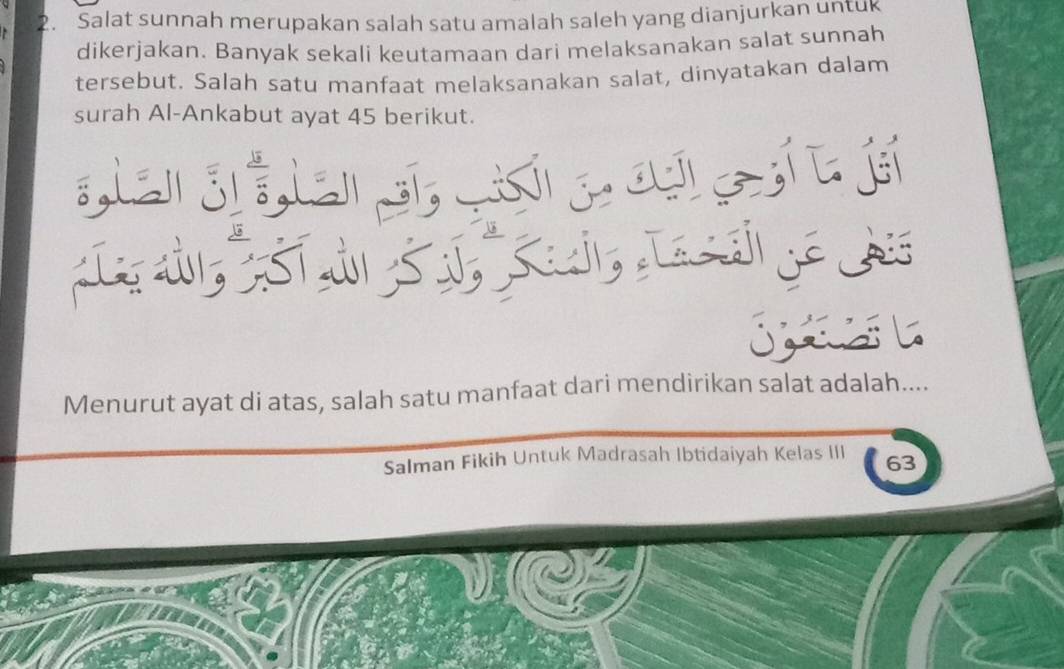 2. Salat sunnah merupakan salah satu amalah saleh yang dianjurkan untuk
dikerjakan. Banyak sekali keutamaan dari melaksanakan salat sunnah
tersebut. Salah satu manfaat melaksanakan salat, dinyatakan dalam
surah Al-Ankabut ayat 45 berikut.
اُتْلُ مَآ اُوْحِيَ اِلَيْكَ مِنَ الْكِتٰبِ وَاَقِمِ الصَّلٰوةَۗ اِنَّ الصَّلٰوةَ
تَنْهٰى عَنِ الْفَحْشَاۤءِ وَالْمُنْكَرِۗ وَلَذِكْرُ اللّٰهِ اَكْبَرُۗ وَاللّٰهُ يَعْلَمُ
مَا تَصْنَعُوْنَ
Menurut ayat di atas, salah satu manfaat dari mendirikan salat adalah....
Salman Fikih Untuk Madrasah Ibtidaiyah Kelas III 63